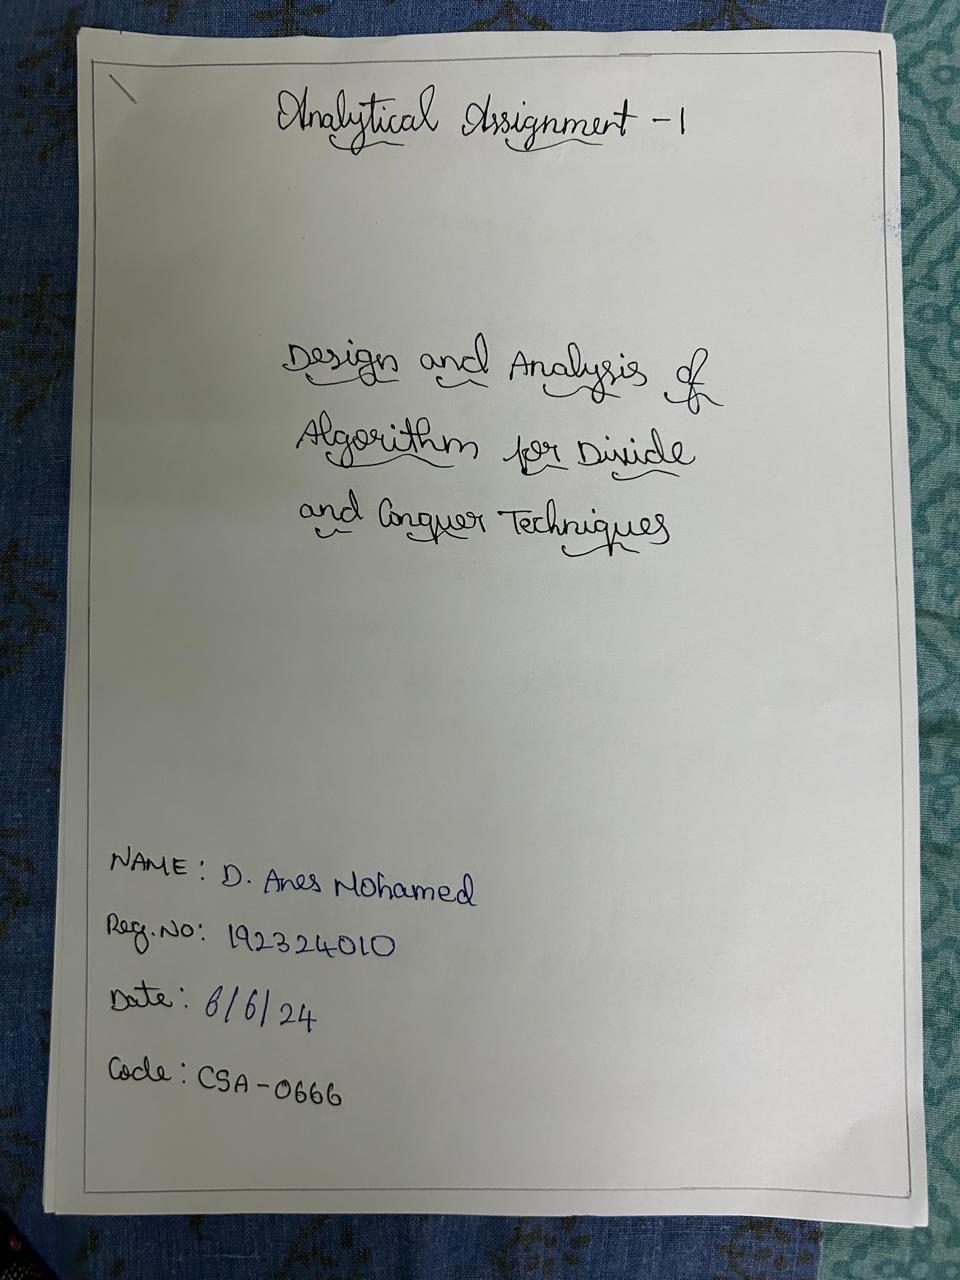 Analytical Assignment - 1
Design and Analysis of
Algorithm for Divide
and Conquer Techniques
NAME: D. Anes Mohamed
Reg.No: 192324010
Date: 6/6/24
Code: CSA-0666